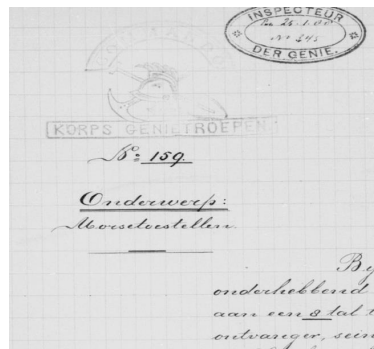 INSPECTEUR
N° 345
DER GENIE.
KORPS GENIETROEPEN
N°: 159.
Onderwerp:
Morsetoestellen
By
onderhebbend
aan een 8 tal t
ontvanger, sein